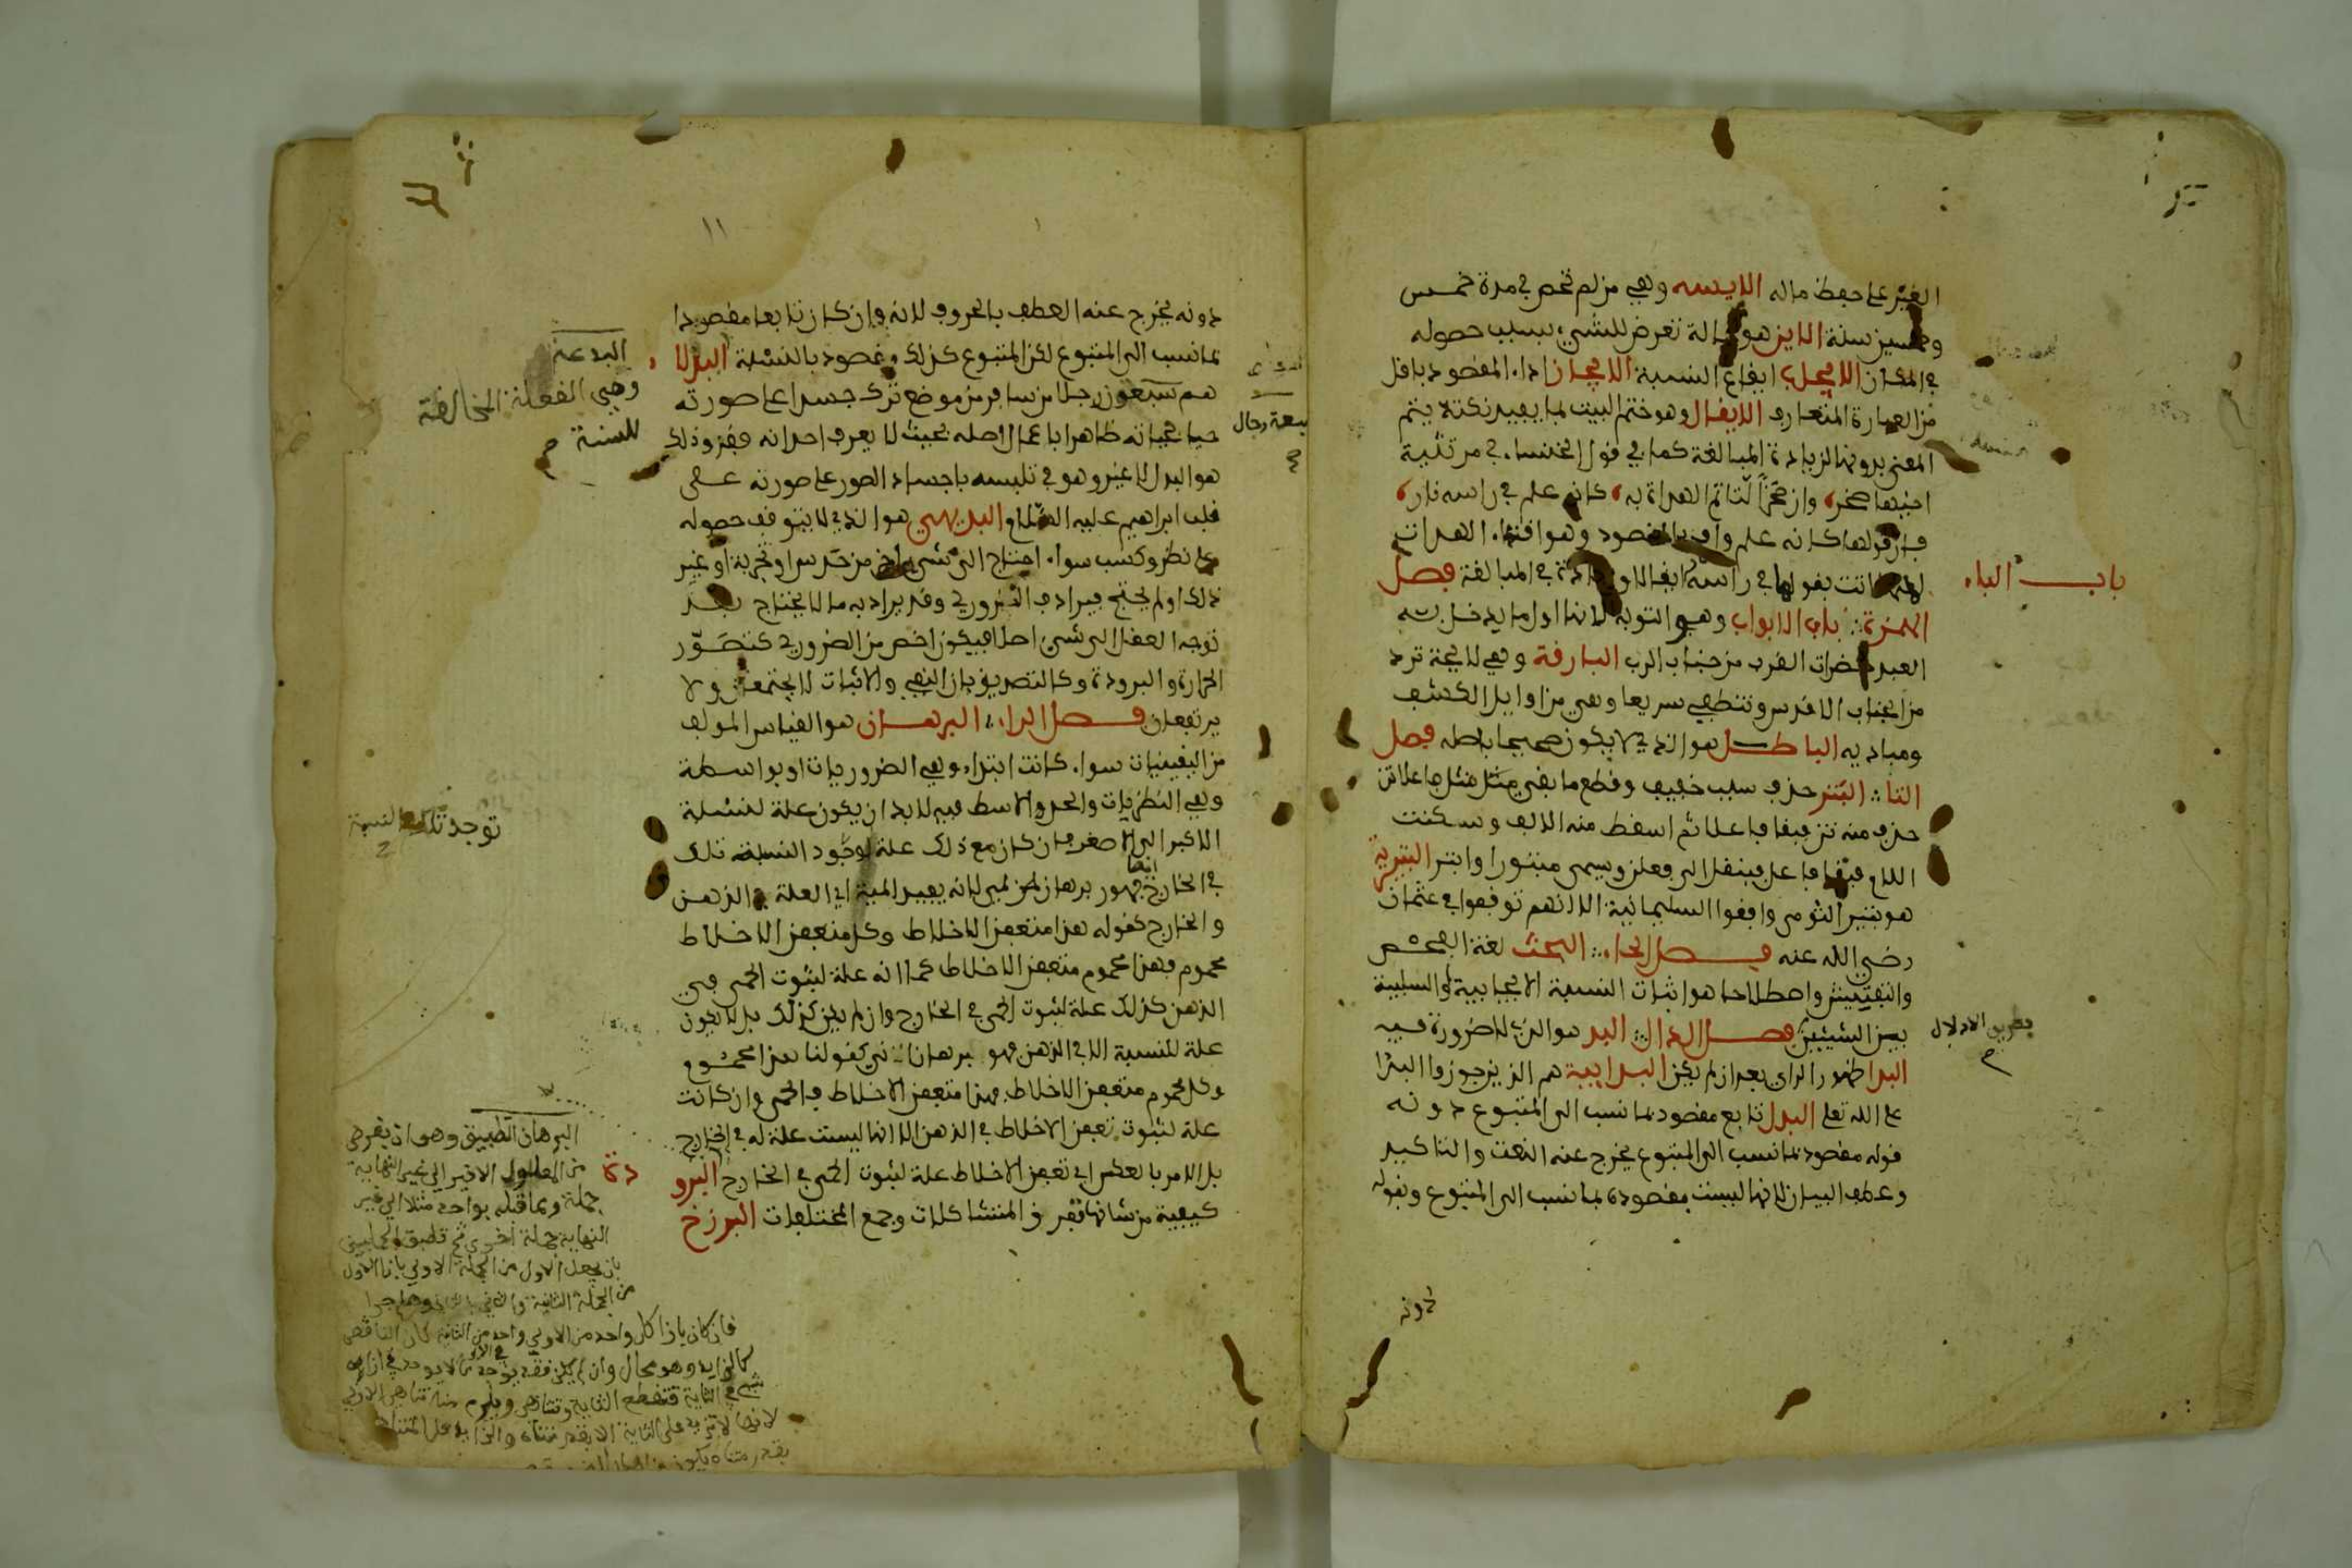 الغير على حفظ ماله الايسه وهي من لم تحض في مدة خمس
وخمسين سنة الاين هو حالة تعرض للشيء بسبب حصوله
في المكان الايجاب ايقاع النسبة الايجاز اداء المقصود باقل
من العبارة المتعارف الايغال وهو ختم البيت بما يفيد نكتة يتم
المعنى بدونها لزيادة المبالغة كما في قول الخنساء في مرثية
اخيها صخر وان صخرا لتاتم الهداة به كانه علم في راسه نار
فان قولها كانه علم واف بالمقصود وهو اقتداء الهداة
لكنها اتت بقولها في راسه ايغالا وزيادة في المبالغة فصل
باب الباء
الهمزة باب الابواب وهو التوبة لانها اول ما يدخل به
العبد حضرات القرب من جناب الرب البارقة وهي لايحة ترد
من الجناب الاقدس وتنطفي سريعا وهي من اوايل الكشف
ومباديه الباطل هو الذي لا يكون صحيحا باصله فصل
التاء البتر حذف سبب خفيف وقطع ما بقي مثل فاعلاتن
حذف منه تن فبقا فاعلا ثم اسقط منه الالف وسكنت
اللام فبقا فاعل فينقل الى فعلن ويسمى مبتورا وابتر البترية
هو بتير الثومى وافقوا السليمانية الا انهم توقفوا في عثمان
رضي الله عنه فصل الحاء البحث لغة الفحص
والتفتيش واصطلاحا هو اثبات النسبة الايجابية او السلبية
بين الشيئين فصل الدال البد هو الذي لا ضرورة فيه
البدا ظهور الراي بعد ان لم يكن البدايية هم الذين جوزوا البدا
على الله تعلى البدل تابع مقصود بما نسب الى المتبوع دونه
قوله مقصود بما نسب الى المتبوع يخرج عنه النعت والتاكيد
وعطف البيان لانها ليست مقصودة بما نسب الى المتبوع وبقوله
دونه
١١
دونه يخرج عنه العطف بالحروف لانه وان كان تابعا مقصودا
بما نسب الى المتبوع لكن المتبوع كذلك مقصود بالنسبة البدلا
هم سبعون رجلا من سافر من موضع ترك جسدا على صورته
سبعة رجال
حيا بحياته ظاهرا باعمال اصله بحيث لا يعرف احد انه فقد وذلك
هو البدل لا غير وهو في تلبسه باجساد الصور على صورته على
قلب ابراهيم عليه السلام البديهي هو الذي لا يتوقف حصوله
على نظر وكسب سواء احتاج الى شيء اخر من حدس او تجربة او غير
ذلك او لم يحتج فيرادف الضروري وقد يراد به ما لا يحتاج بعد
توجه العقل الى شيء اصلا فيكون اخص من الضروري كتصور
الحرارة والبرودة وكالتصديق بان النفي والاثبات لا يجتمعان ولا
يرتفعان فصل الراء البرهان هو القياس المولف
من اليقينيات سواء كانت ابتداء وهي الضروريات او بواسطة
وهي النظريات والحد الاوسط فيه لا بد ان يكون علة لنسبة
الاكبر الى الاصغر فان كان مع ذلك علة لوجود النسبة تلك
في الخارج ايضا فهو برهان لمي لانه يفيد اللمية اي العلة في الذهن
والخارج كقوله هذا متعفن الاخلاط وكل متعفن الاخلاط
محموم فهذا محموم متعفن الاخلاط كما انه علة لثبوت الحمى في
الذهن كذلك علة لثبوت الحمى في الخارج وان لم يكن كذلك بل لا يكون
علة للنسبة الا في الذهن فهو برهان اني كقولنا هذا محموم
وكل محموم متعفن الاخلاط فهذا متعفن الاخلاط فالحمى وان كانت
علة لثبوت تعفن الاخلاط في الذهن الا انها ليست علة له في الخارج
بل الامر بالعكس اي تعفن الاخلاط علة لثبوت الحمى في الخارج البرو
دة
كيفية من شانها تفريق المتشاكلات وجمع المختلفات البرزخ
البدعة
وهي الفعلة المخالفة
للسنة
توجد تلك النسبة
البرهان التطبيق وهو ان يفرض
من المعلول الاخير الى غير النهاية
جملة وبما قبله بواحد مثلا الى غير
النهاية جملة اخرى ثم تطبق الجملتين
بان يجعل الاول من الجملة الاولى بازا الاول
من الجملة الثانية والثاني بالثاني وهلم جرا
فان كان بازا كل واحد من الاولى واحد من الثانية كان الناقص
كالزايد وهو محال وان لم يكن فقد يوجد في الاولى ما لا يوجد في ازايه
شيء في الثانية فتنقطع الثانية وتتناهى ويلزم منه تناهي الاولى
لانها لا تزيد على الثانية الا بقدر متناه والزايد على المتناهي